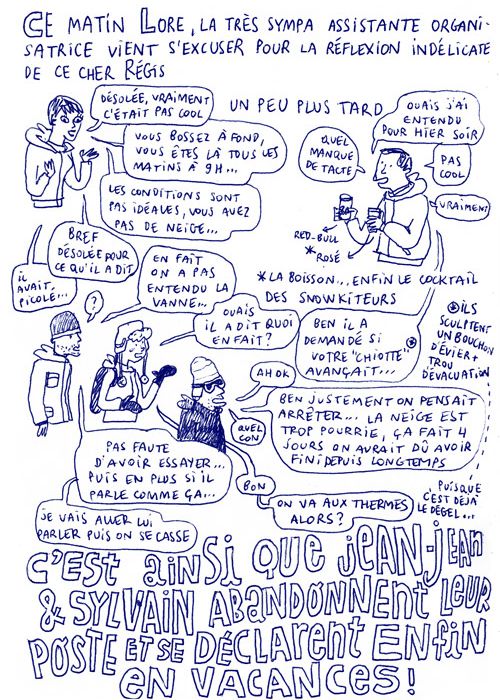 CE MATIN LORE, LA TRÈS SYMPA ASSISTANTE ORGANI-
SATRICE VIENT S'EXCUSER POUR LA RÉFLEXION INDÉLICATE
DE CE CHER RÉGIS
DÉSOLÉE, VRAIMENT
C'ÉTAIT PAS COOL
VOUS BOSSEZ À FOND,
VOUS ÊTES LÀ TOUS LES
MATINS À 9H...
LES CONDITIONS SONT
PAS IDÉALES, VOUS AVEZ
PAS DE NEIGE...
BREF
DÉSOLÉE POUR
CE QU'IL A DIT
IL
AVAIT
PICOLÉ...
UN PEU PLUS TARD
OUAIS J'AI
ENTENDU
POUR HIER SOIR
QUEL
MANQUE
DE TACTE
PAS
COOL
VRAIMENT
RED-BULL
*ROSÉ
*LA BOISSON... ENFIN LE COCKTAIL
DES SNOWKITEURS
?
EN FAIT
ON A PAS
ENTENDU LA
VANNE...
OUAIS
IL A DIT QUOI
EN FAIT?
BEN IL A
DEMANDÉ SI
VOTRE "CHIOTTE"*
AVANÇAIT...
*ILS
SCULPTENT
UN BOUCHON
D'ÉVIER +
TROU
D'ÉVACUATION
AH OK
QUEL
CON
BEN JUSTEMENT ON PENSAIT
ARRÊTER... LA NEIGE EST
TROP POURRIE, ÇA FAIT 4
JOURS ON AURAIT DÛ AVOIR
FINI DEPUIS LONGTEMPS
PAS FAUTE
D'AVOIR ESSAYER...
PUIS EN PLUS SI IL
PARLE COMME ÇA...
JE VAIS ALLER LUI
PARLER PUIS ON SE CASSE
BON
ON VA AUX THERMES
ALORS?
PUISQUE
C'EST DÉJÀ
LE DÉGEL...
C'EST AINSI QUE JEAN-JEAN
& SYLVAIN ABANDONNENT LEUR
POSTE ET SE DÉCLARENT ENFIN
EN VACANCES!